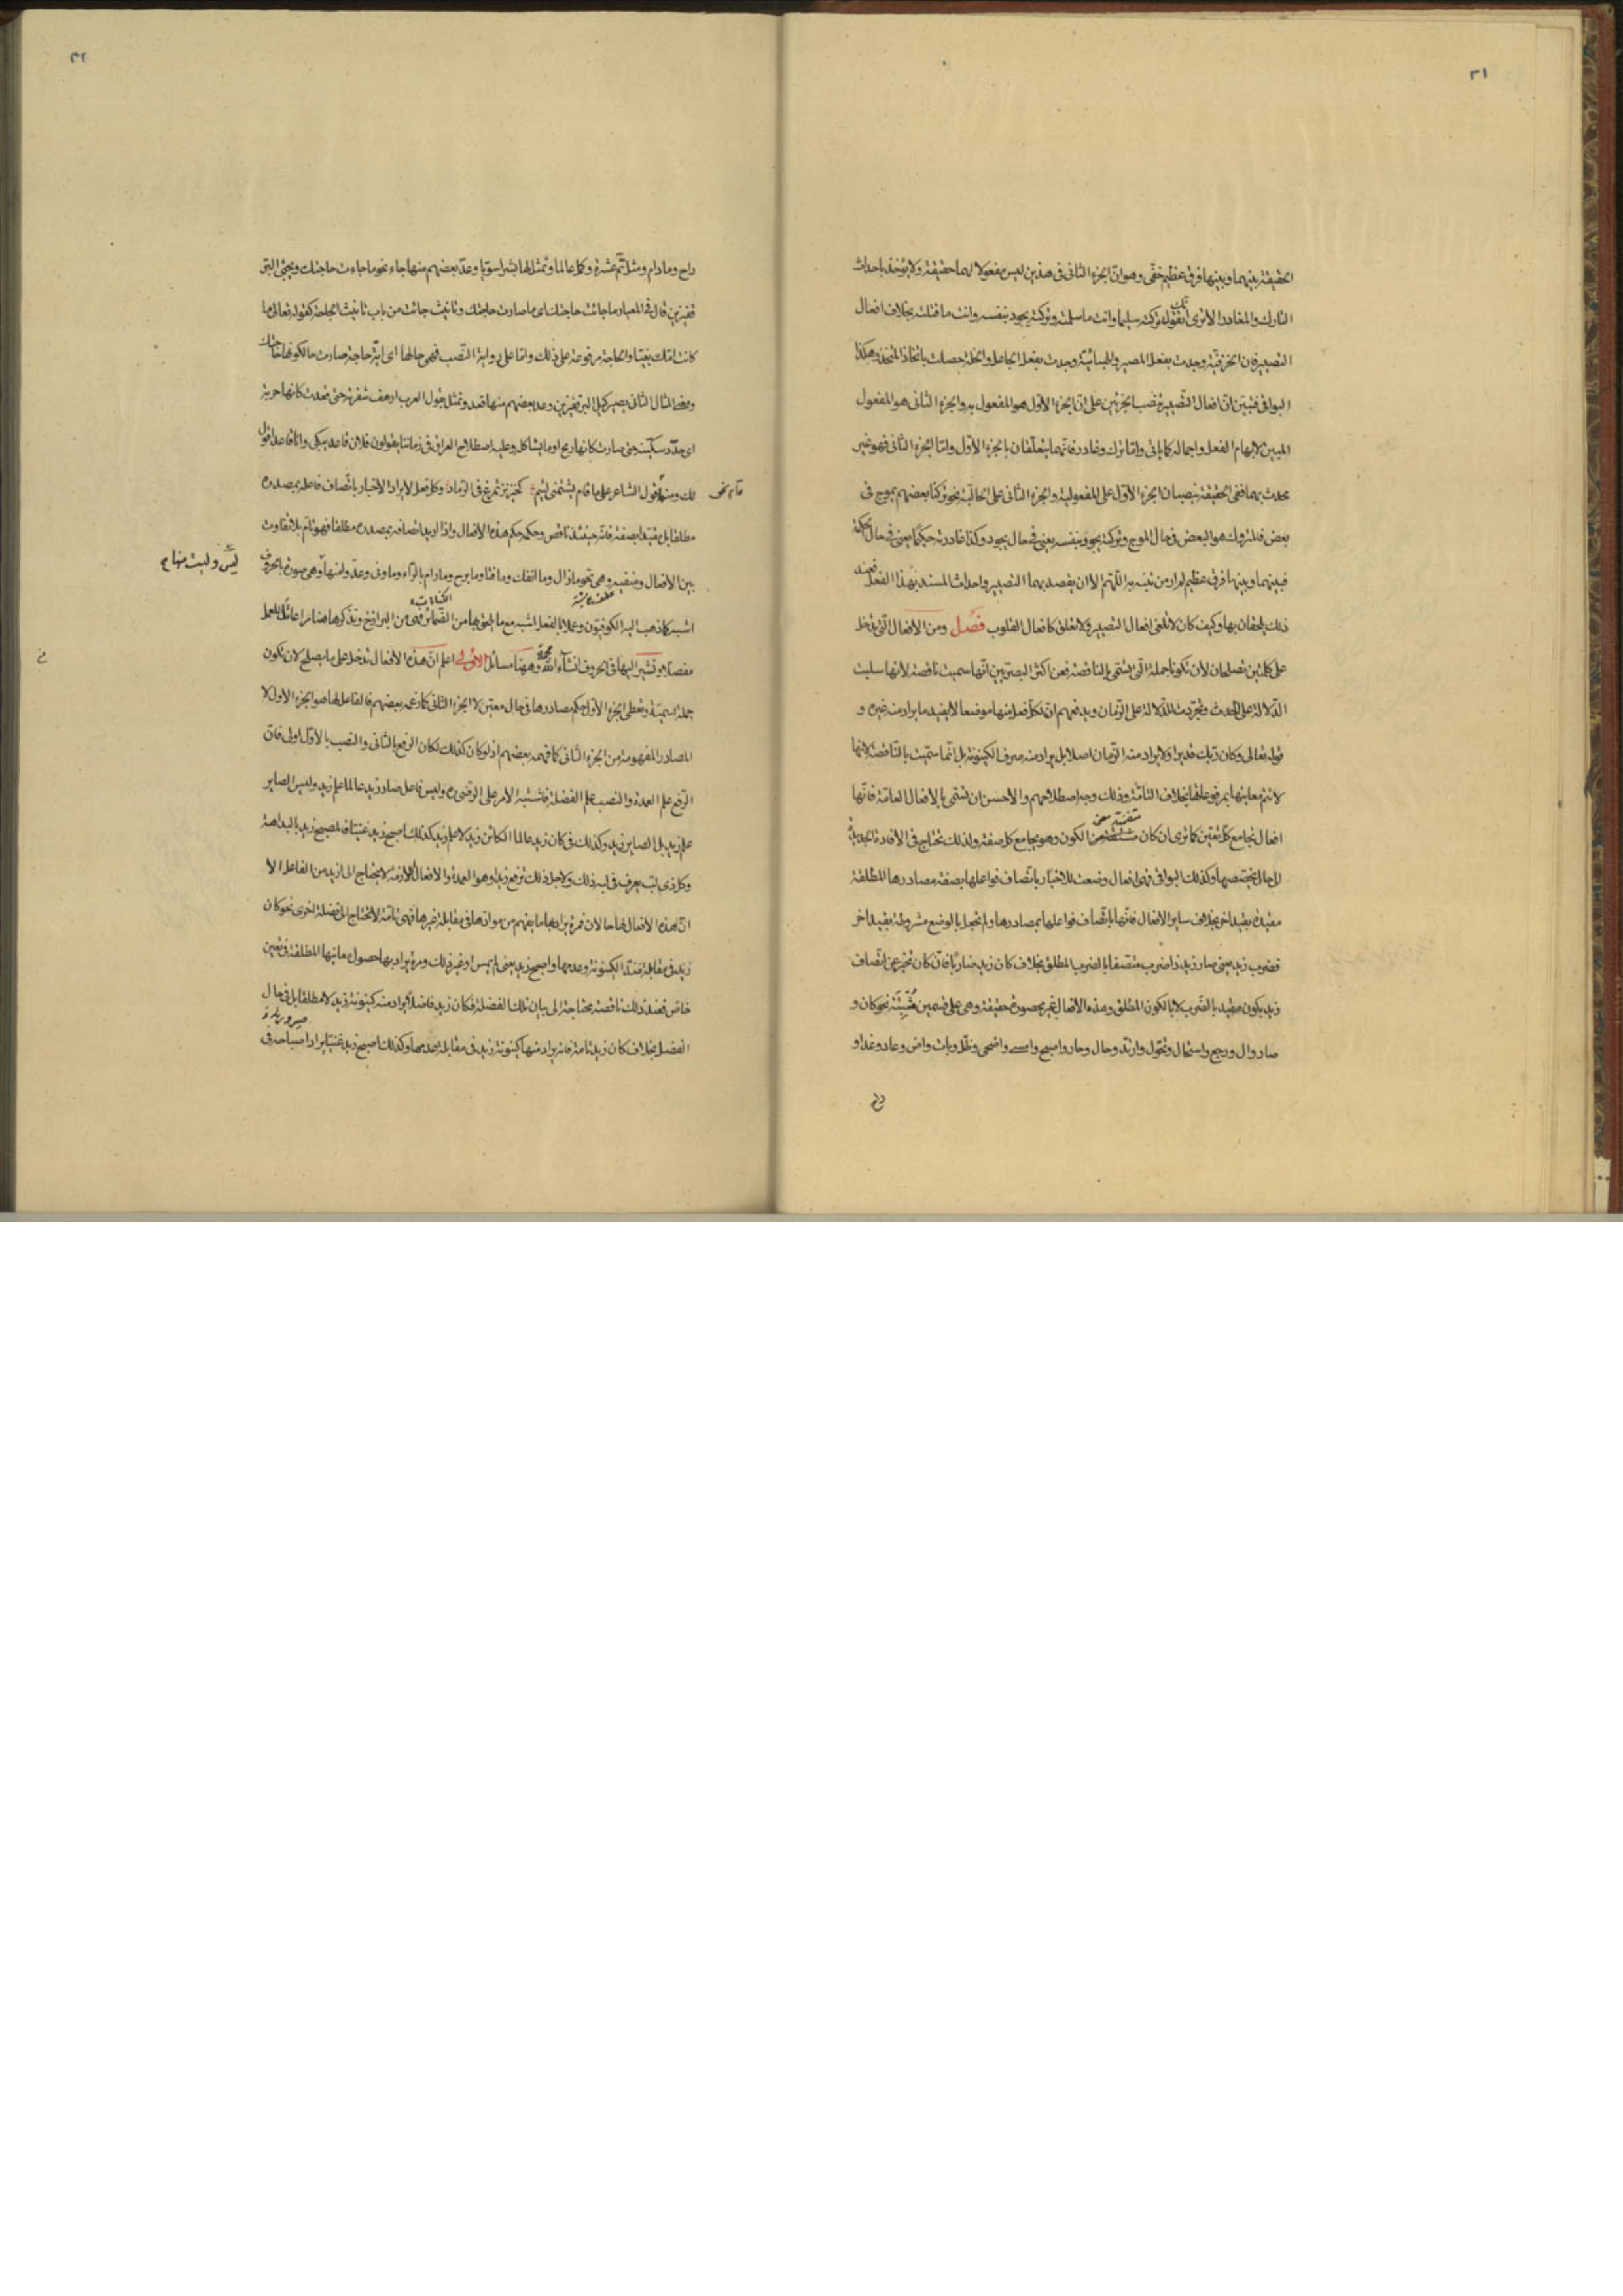 ٣١
الحقيقة بينهما وبينها فرق عظيم خفى وهو ان الجزء الثانى فى هذين ليس مفعولا لهما حقيقة ولا يؤخذ باحداث
التارك والمغادر الا ترى انك تقول تركته سليما وانت ما سلمته وتركته يجود بنفسه وانت ما قتلته بخلاف افعال
التصيير فان الخزفيّة وجدت بفعل المصير والهبائيّة وجدت بفعل الجاعل والخلة حصلت باتخاذ المتخذ وهكذا
البواقى فتبيّن ان افعال التصيير تنصب الجزئين على ان الجزء الاوّل هو المفعول به والجزء الثانى هو المفعول
المبين لابهام الفعل واجماله كما ياتى واما ترك وغادر فانهما يتعلّقان بالجزء الاوّل واما الجزء الثانى فهو غير
محدث بهما ففى الحقيقة ينصبان الجزء الاوّل على المفعولية والجزء الثانى على الحاليّة نحو تركنا بعضهم يموج فى
بعض فالمتروك هو البعض فى حال الموج وتركته يجود بنفسه يعنى فى حال يجود وكذا غادرته حكيمًا يعنى فى حال حكمة
فبينهما وبينها فرق عظيم لم ار من تنبه به اللّهم الا ان يقصد بهما التصيير واحداث المسند بهذا الفعل فعند
ذلك يلحقان بها وكيف كان لا تلغى افعال التصيير ولا تعلق كافعال القلوب فصل ومن الافعال التى تدخل
على كلمتين تصلحان لان تكونا جملة التى تسمى بالناقصة فعن اكثر البصريين انها سميت ناقصة لانها سلبت
الدّلالة على الحدث وتجردت للدّلالة على الزمان ويدفعهم ان لكل فعل منها موضعا لا يفيد ما يراد منه غيره و
قوله تعالى وكان ربك قديرا ولا يراد منه الزمان اصلا بل يراد منه صرف الكينونة بل انما سميت بالناقصة لانها
لا تتم معانيها بمرفوعاتها بخلاف التامّة وذلك وجه اصطلاحهم والاحسن ان تسمى بالافعال العامّة فانّها
افعال تجامع كل تعيّن كما ترى ان كان متضمنة معنى الكون وهو يجامع كل صفة ولذلك تحتاج فى الافادة الجديدة
الى حال تخصصها وكذلك البواقى فهى افعال وضعت للاخبار باتّصاف فواعلها بصفة مصادرها المطلقة
مقيدة بقيد اخر بخلاف ساير الافعال فانّها باتصاف فواعلها بمصادرها ولم تجعل بالوضع مشروطة بقيد اخر
فضرب زيد يعنى صار زيد ذا ضرب متصفا بالضرب المطلق بخلاف كان زيد ضاربًا فان كان تخبر عن اتّصاف
زيد بكون مقيد بالضّرب لا بالكون المطلق وهذه الافعال غير محصورة حقيقة وهى على قسمين مُثْبِتَة نحو كان و
صار وال ورجع واستحال وتحول وارتد وحال وحار واصبح وامسى واضحى وظلّ وبات واض وعاد وغدا و
راح
٣٢
راح وما دام ومثل تمّ عشرة وكمل عالما وتمثل لها بشرا سويّا وعدّ بعضهم منها جاء نحو ما جاءت حاجتك ويجئ البر
قفيزين قال فى المعيار ما جائت حاجتك اى ما صارت حاجتك وتانيث جائت من باب تانيث الحاجة كقوله تعالى ما
كانت امّك بغيّا والحاجة مرفوعة على ذلك واما على رواية النّصب فهى حالها اى ايّة حاجة صارت حالكونها حاجتك
ومعنى المثال الثانى يصير كيل البر قفيزين وعد بعضهم منها قعد وتمثل بقول العرب ارهف شفرته حتى قعدت كانها حربة
اى حدّد سكّينه حتى صارت كانها رمح او ما يشاكل وعليه اصطلاح العراق فى زماننا يقولون فلان قاعد يبكى وانا قاعد اقول
لك ومنها قام نحو قول الشاعر على ما قام يشتمنى لئيم كخنزير تمرغ فى الرماد وكل فعل لا يراد الاخبار باتّصاف فاعله بمصدره
مطلقا بل مقيّدا بصفة فانّه حينئذ ناقص وحكمه حكم هذه الافعال واذا اريد اتصافه بمصدره مطلقا فهو تام بلا تفاوت
بين الافعال ومنفيه وهى نحو ما زال وما انفك وما فتأ وما برح وما دام بالرّاء وما ونى وعدّ منها ليس وليست منها وهى صورة بالحروف
اشبه كما ذهب اليه الكوفيّون وعملا بالفعل اشبه مع ما يلحق بها من الضّمائر فهى من البرازخ ونذكرها هنا مراعاةً للعمل
مفصّلا ونشير اليها فى الحروف انشآء اللّه مجملًا وههنا مسائل الاولى اعلم انّ هذه الافعال تدخل على ما يصلح لان تكون
جملة اسميّة وتعطى الجزء الاوّل حكم مصادرها فى حال معين لا الجزء الثانى كما زعمه بعضهم فالفاعل لها هو الجزء الاول لا
المصادر المفهومة من الجزء الثانى كما فهمه بعضهم اذ لو كان كذلك لكان الرفع بالثانى والنصب بالاوّل اولى فان
الرّفع علم العمدة والنصب علم الفضلة فاشتبه الامر على الرضى ره وليس فاعل صار زيد عالما علم زيد وليس الصاير
علم زيد بل الصاير زيد وكذلك فى كان زيد عالما الكائن زيد لا علم زيد كذلك اصبح زيد غنيّا فالمصبح زيد بالبداهة
وكل ذى لبّ يعرف فى لبه ذلك ولاجل ذلك ترفع زيدا وهو العمدة والافعال اللازمة لا يحتاج الى ازيد من الفاعل الا
انّ هذه الافعال لها حالان فمرة يراد بها ما يفهم من موادها فى مقابلة غيرها فهى تامة لا تحتاج الى فضلة اخرى نحو كان
زيد فى مقابلة الكينونة وعدمها واصبح زيد يعنى لم يمس او غير ذلك ومرة يراد بها حصول معانيها المطلقة فى تعين
خاصّ فعند ذلك ناقصة محتاجة الى بيان تلك الفضلة فكان زيد فاضلًا يراد منه كينونة زيد لا مطلقا بل فى حال
الفضل بخلاف كان زيد تامة فانه يراد منها كينونة زيد فى مقابلة عدمها وكذلك اصبح زيد غنيّا يراد اصباحه فى